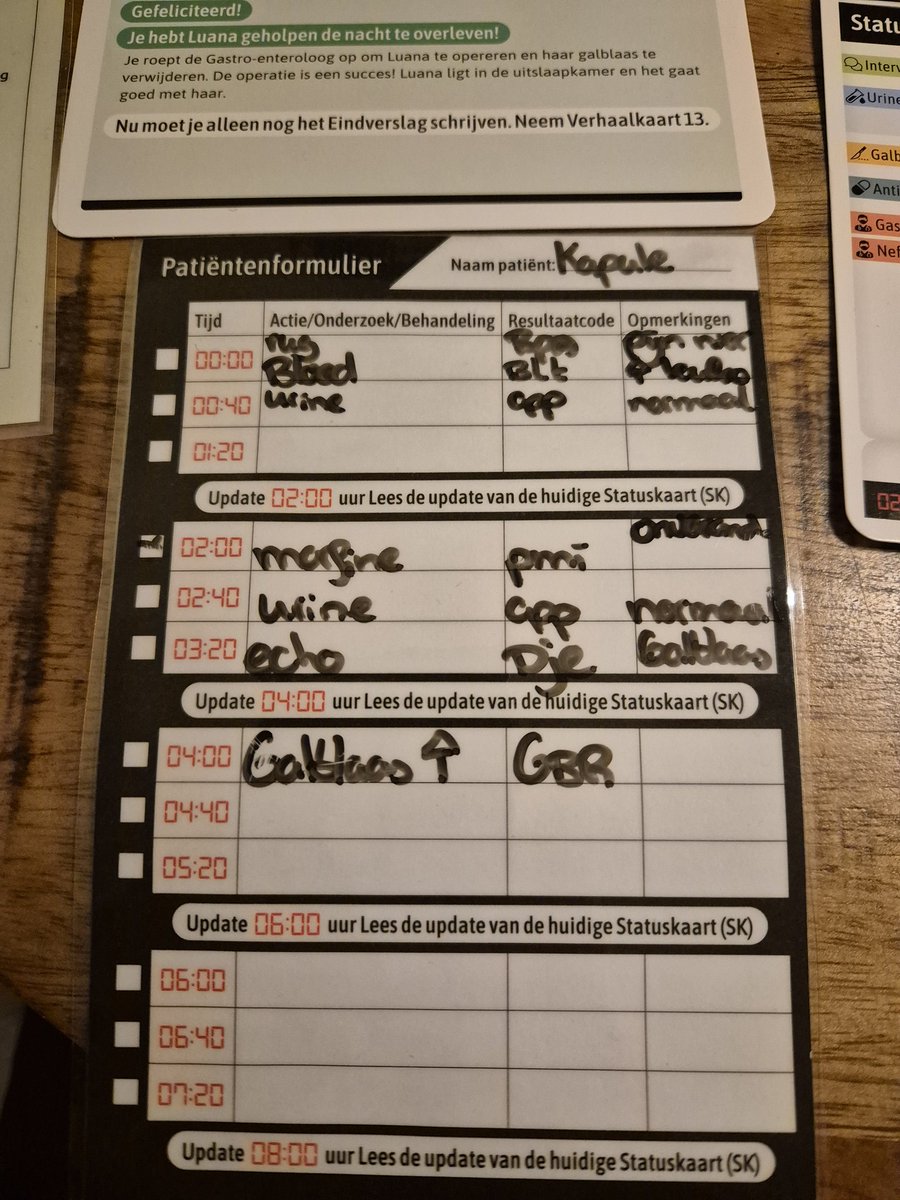 g
Gefeliciteerd!
Je hebt Luana geholpen de nacht te overleven!
Je roept de Gastro-enteroloog op om Luana te opereren en haar galblaas te
verwijderen. De operatie is een succes! Luana ligt in de uitslaapkamer en het gaat
goed met haar.
Nu moet je alleen nog het Eindverslag schrijven. Neem Verhaalkaart 13.
Statu
Interv
Urine
Galb
Anti
Gas
Nef
02
Patiëntenformulier
Naam patiënt: Kapule
Tijd Actie/Onderzoek/Behandeling Resultaatcode Opmerkingen
00:00 rug pijn nier
Bloed BLt leuko
00:40 urine app normaal
01:20
Update 02:00 uur Lees de update van de huidige Statuskaart (SK)
02:00 morfine pmi
02:40 urine app normaal
03:20 echo Dje Galblaas
Update 04:00 uur Lees de update van de huidige Statuskaart (SK)
04:00 Galblaas ↑ GBR
04:40
05:20
Update 06:00 uur Lees de update van de huidige Statuskaart (SK)
06:00
06:40
07:20
Update 08:00 uur Lees de update van de huidige Statuskaart (SK)